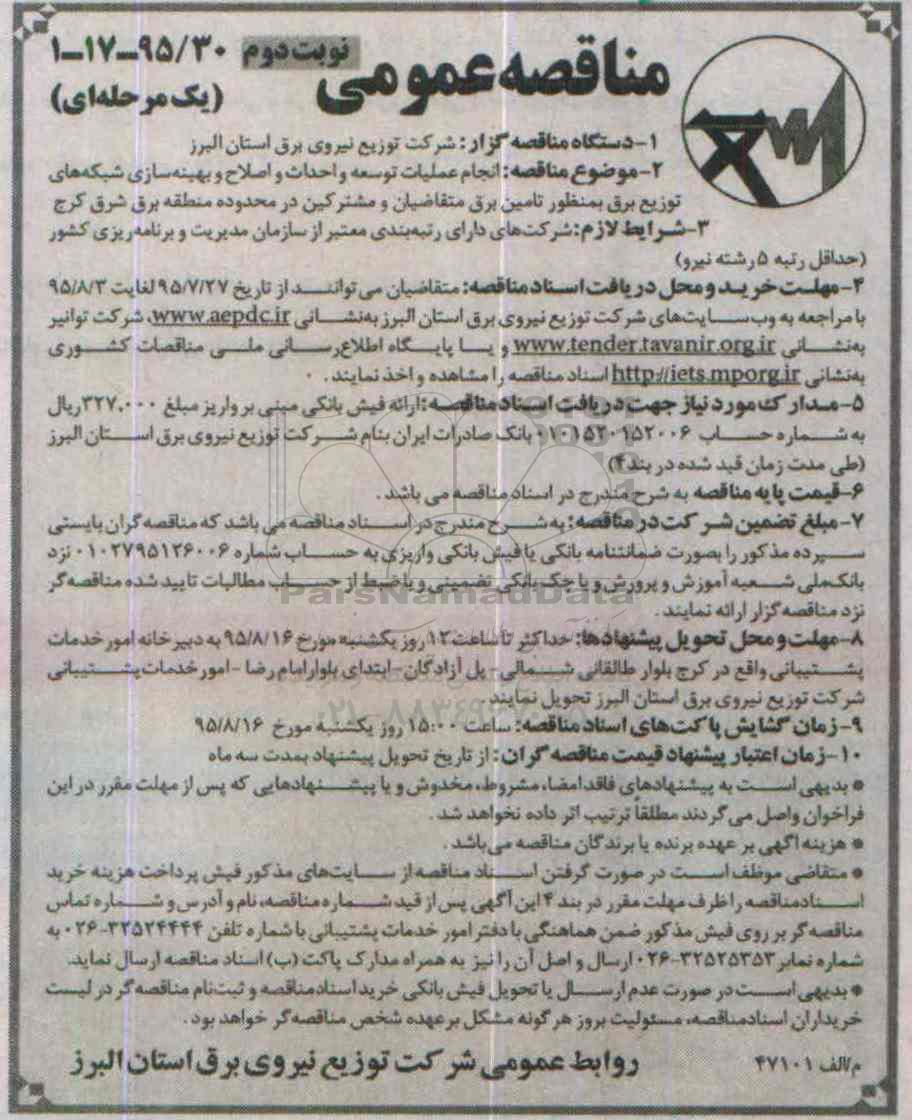 مناقصه عمومی
نوبت دوم
۹۵/۳۰-۱۷-۱
(یک مرحله‌ای)
۱-دستگاه مناقصه گزار: شرکت توزیع نیروی برق استان البرز
۲-موضوع مناقصه: انجام عملیات توسعه و احداث و اصلاح و بهینه‌سازی شبکه‌های
توزیع برق بمنظور تامین برق متقاضیان و مشترکین در محدوده منطقه برق شرق کرج
۳-شرایط لازم: شرکت‌های دارای رتبه‌بندی معتبر از سازمان مدیریت و برنامه‌ریزی کشور
(حداقل رتبه ۵ رشته نیرو)
۴-مهلت خرید و محل دریافت اسناد مناقصه: متقاضیان می‌توانند از تاریخ ۹۵/۷/۲۷ لغایت ۹۵/۸/۳
با مراجعه به وب‌سایت‌های شرکت توزیع نیروی برق استان البرز به‌نشانی www.aepdc.ir، شرکت توانیر
به‌نشانی www.tender.tavanir.org.ir و یا پایگاه اطلاع‌رسانی ملی مناقصات کشوری
به‌نشانی http://iets.mporg.ir اسناد مناقصه را مشاهده و اخذ نمایند.
۵-مدارک مورد نیاز جهت دریافت اسناد مناقصه: ارائه فیش بانکی مبنی بر واریز مبلغ ۳۲۷.۰۰۰ ریال
به شماره حساب ۰۱۰۱۵۲۰۱۵۲۰۰۶ بانک صادرات ایران بنام شرکت توزیع نیروی برق استان البرز
(طی مدت زمان قید شده در بند ۴)
۶-قیمت پایه مناقصه به شرح مندرج در اسناد مناقصه می باشد.
۷-مبلغ تضمین شرکت در مناقصه: به شرح مندرج در اسناد مناقصه می باشد که مناقصه گران بایستی
سپرده مذکور را بصورت ضمانتنامه بانکی یا فیش بانکی واریزی به حساب شماره ۰۱۰۲۷۹۵۱۲۶۰۰۶ نزد
بانک ملی شعبه آموزش و پرورش و یا چک بانکی تضمینی و یا ضبط از حساب مطالبات تایید شده مناقصه‌گر
نزد مناقصه گزار ارائه نمایند.
۸-مهلت و محل تحویل پیشنهادها: حداکثر تا ساعت ۱۲ روز یکشنبه مورخ ۹۵/۸/۱۶ به دبیرخانه امور خدمات
پشتیبانی واقع در کرج بلوار طالقانی شمالی - پل آزادگان - ابتدای بلوار امام رضا - امور خدمات پشتیبانی
شرکت توزیع نیروی برق استان البرز تحویل نمایند
۹-زمان گشایش پاکت‌های اسناد مناقصه: ساعت ۱۵:۰۰ روز یکشنبه مورخ ۹۵/۸/۱۶
۱۰-زمان اعتبار پیشنهاد قیمت مناقصه گران: از تاریخ تحویل پیشنهاد بمدت سه ماه
● بدیهی است به پیشنهادهای فاقد امضا، مشروط، مخدوش و یا پیشنهادهایی که پس از مهلت مقرر در این
فراخوان واصل می گردند مطلقاً ترتیب اثر داده نخواهد شد.
● هزینه اگهی بر عهده برنده یا برندگان مناقصه می‌باشد.
● متقاضی موظف است در صورت گرفتن اسناد مناقصه از سایت‌های مذکور فیش پرداخت هزینه خرید
اسناد مناقصه را ظرف مهلت مقرر در بند ۴ این آگهی پس از قید شماره مناقصه، نام و آدرس و شماره تماس
مناقصه گر بر روی فیش مذکور ضمن هماهنگی با دفتر امور خدمات پشتیبانی با شماره تلفن ۳۲۵۲۴۴۴۴-۰۲۶ به
شماره نمابر ۳۲۵۲۵۳۵۳-۰۲۶ ارسال و اصل آن را نیز به همراه مدارک پاکت (ب) اسناد مناقصه ارسال نماید.
● بدیهی است در صورت عدم ارسال یا تحویل فیش بانکی خرید اسناد مناقصه و ثبت‌نام مناقصه گر در لیست
خریداران اسناد مناقصه، مسئولیت بروز هر گونه مشکل بر عهده شخص مناقصه‌گر خواهد بود.
م/الف ۴۷۱۰۱
روابط عمومی شرکت توزیع نیروی برق استان البرز
ParsNamadData